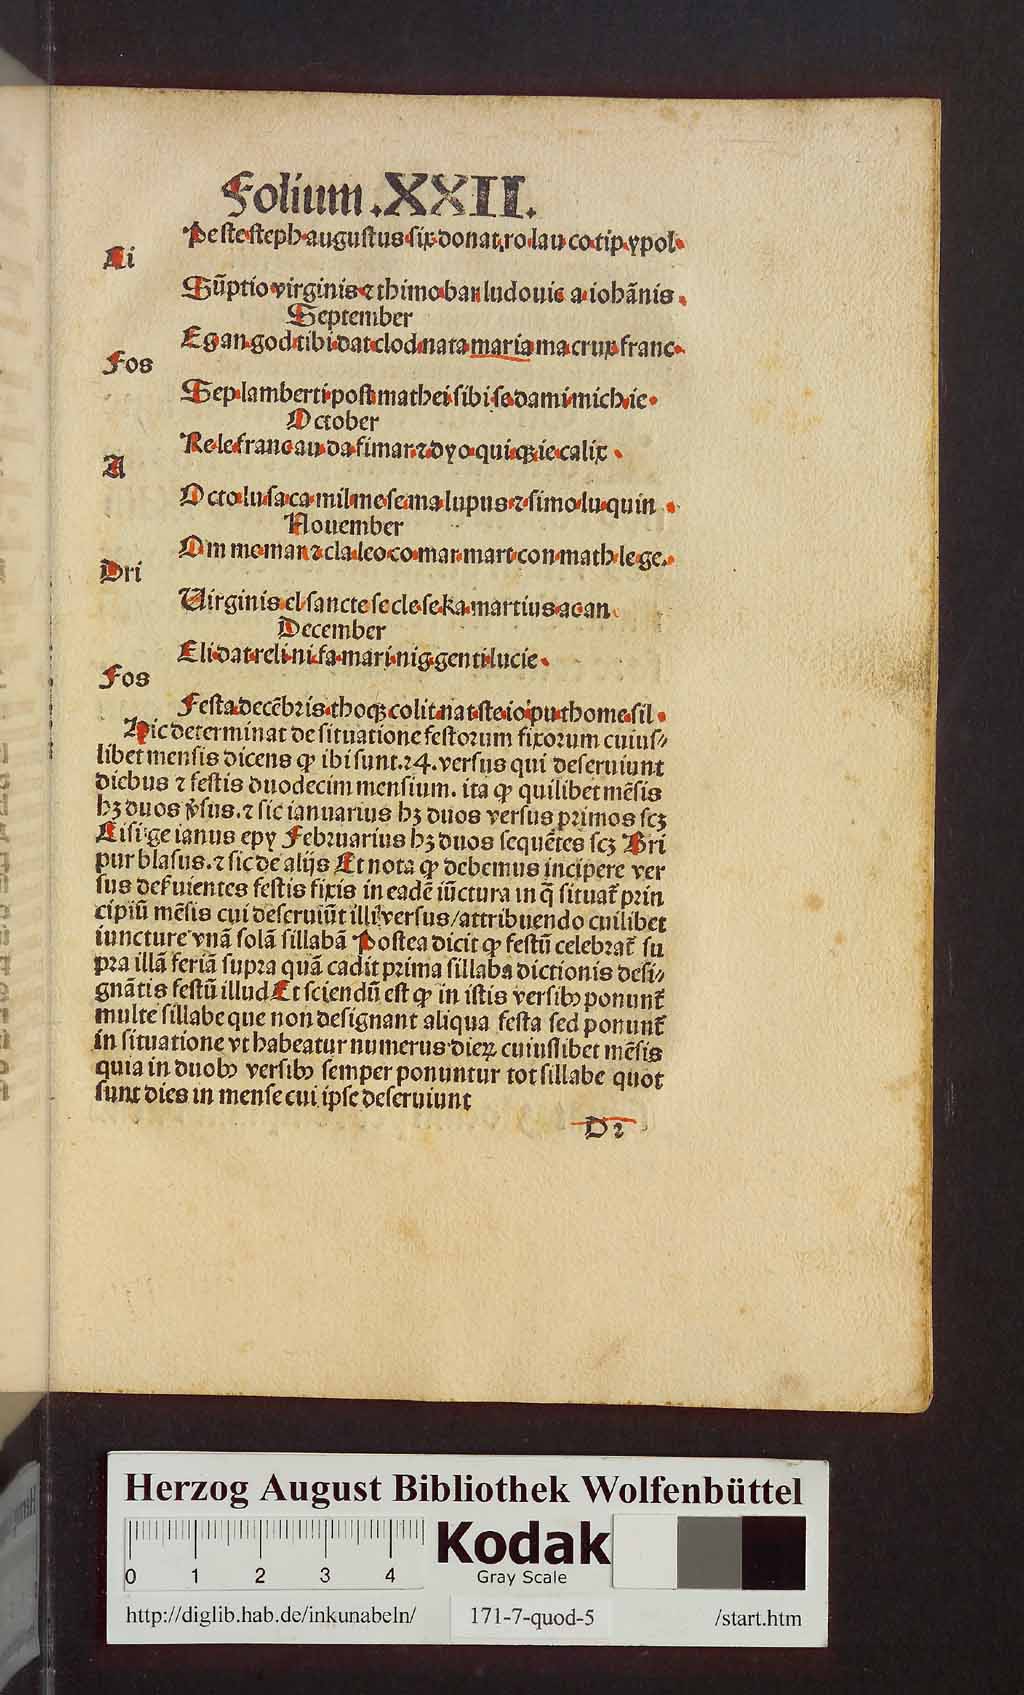 Folium .XXII.
Pe ste steph augustus six donat ro lau co tip ypol
Ai
Sūptio virginis ⁊ thimo bar ludouic a iohānis
September
Egan god tibi dat clod nata maria ma crux franc
Fos
Sep lamberti post mathei sibi se dami mich ie
October
Re le franc au da fi mar ⁊ dyo qui qꝫ ie calix
A
Octo lu sa ca mil me se ma lupus ⁊ simo lu quin
Nouember
Om me mar ⁊ cla leo co mar mart con math le ge
Dri
Uirginis el sancte se cle se ka martius ac an
December
Eli dat reli ni fa mari nig genti lucie
Fos
Festa decēbris tho qꝫ colit nat ste io pu thome sil
Hic determinat de situatione festorum fixorum cuius⸗
libet mensis dicens ꝙ ibi sunt.24.versus qui deseruiunt
diebus ⁊ festis duodecim mensium. ita ꝙ quilibet mēsis
hꝫ duos v̄sus.⁊ sic ianuarius hꝫ duos versus primos scꝫ
Aisi:ge ianus epy Februarius hꝫ duos sequētes scꝫ Bri
pur blasus.⁊ sic de alijs Et nota ꝙ debemus incipere ver
sus def uientes festis fixis in eadē iūctura in q̄ situat᷑ prin
cipiū mēsis cui deseruiūt illi versus/attribuendo cuilibet
iuncture vnā solā sillabā Postea dicit ꝙ festū celebrat᷑ su
pra illā feriā supra quā cadit prima sillaba dictionis desi⸗
gnātis festū illud Et sciendū est ꝙ in istis versibꝰ ponunt᷑
multe sillabe que non designant aliqua festa sed ponunt᷑
in situatione vt habeatur numerus dieꝝ cuiuslibet mēsis
quia in duobꝰ versibꝰ semper ponuntur tot sillabe quot
sunt dies in mense cui ipse deseruiunt
D2
Herzog August Bibliothek Wolfenbüttel
0 1 2 3 4
Kodak
Gray Scale
http://diglib.hab.de/inkunabeln/ 171-7-quod-5 /start.htm